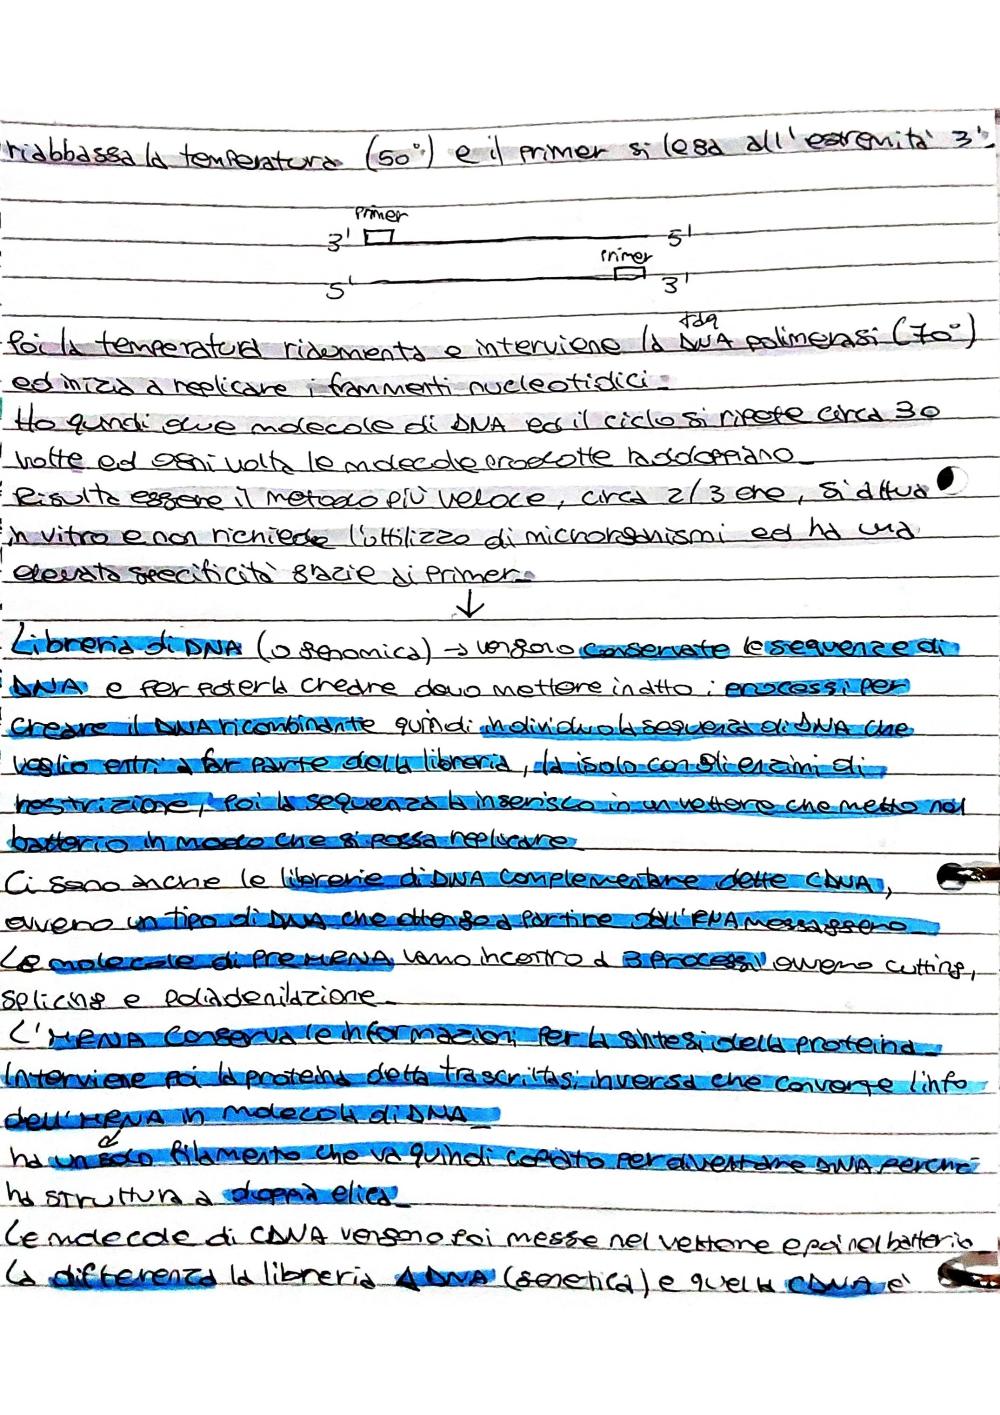 riabbassa la temperatura (50°) e il primer si lega all'estremità 3'.
primer
3' 5'
primer
5' 3'
Poi la temperatura riaumenta e interviene la taq DNA polimerasi (70°)
ed inizia a replicare i frammenti nucleotidici.
Ho quindi due molecole di DNA ed il ciclo si ripete circa 30
volte ed ogni volta le molecole prodotte raddoppiano.
Risulta essere il metodo più veloce, circa 2/3 ore, si attua
in vitro e non richiede l'utilizzo di microrganismi ed ha una
elevata specificità grazie ai primer.
↓
Libreria di DNA (o genomica) → vengono conservate le sequenze di
DNA e per poterla creare devo mettere in atto i processi per
creare il DNA ricombinante quindi individuo la sequenza di DNA che
voglio entri a far parte della libreria, la isolo con gli enzimi di
restrizione, poi la sequenza la inserisco in un vettore che metto nel
batterio in modo che si possa replicare
Ci sono anche le librerie di DNA complementare dette cDNA,
ovvero un tipo di DNA che ottengo a partire dall'RNA messaggero.
Le molecole di PreMRNA vanno incontro a 3 processi ovvero cutting,
splicing e poliadenilazione.
L'MRNA conserva le informazioni per la sintesi della proteina.
Interviene poi la proteina detta trascrittasi inversa che converte l'info
dell'MRNA in molecola di DNA.
ha un solo filamento che va quindi copiato per diventare DNA perché
ha struttura a doppia elica.
Le molecole di cDNA vengono poi messe nel vettore e poi nel batterio.
La differenza la libreria a DNA (genetica) e quella cDNA è